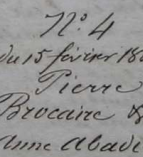 N.º 4
du 15 février 18
Pierre
Brocaire &
Anne Abadi